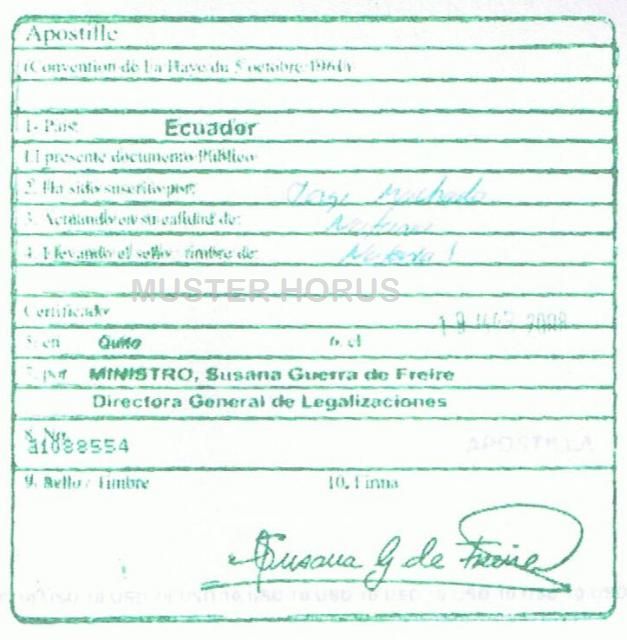 Apostille
(Convention de La Haye du 5 octobre 1961)
1- País: Ecuador
El presente documento Público
2. Ha sido suscrito por: Jorge Machado
3. Actuando en su calidad de:
4. Llevando el sello / timbre de:
MUSTER HORUS
Certificado
5. en Quito 6. el 19 2008
7. por MINISTRO, Susana Guerra de Freire
Directora General de Legalizaciones
8. No.
a1088554
9. Sello / Timbre 10. Firma
Susana G de Freire